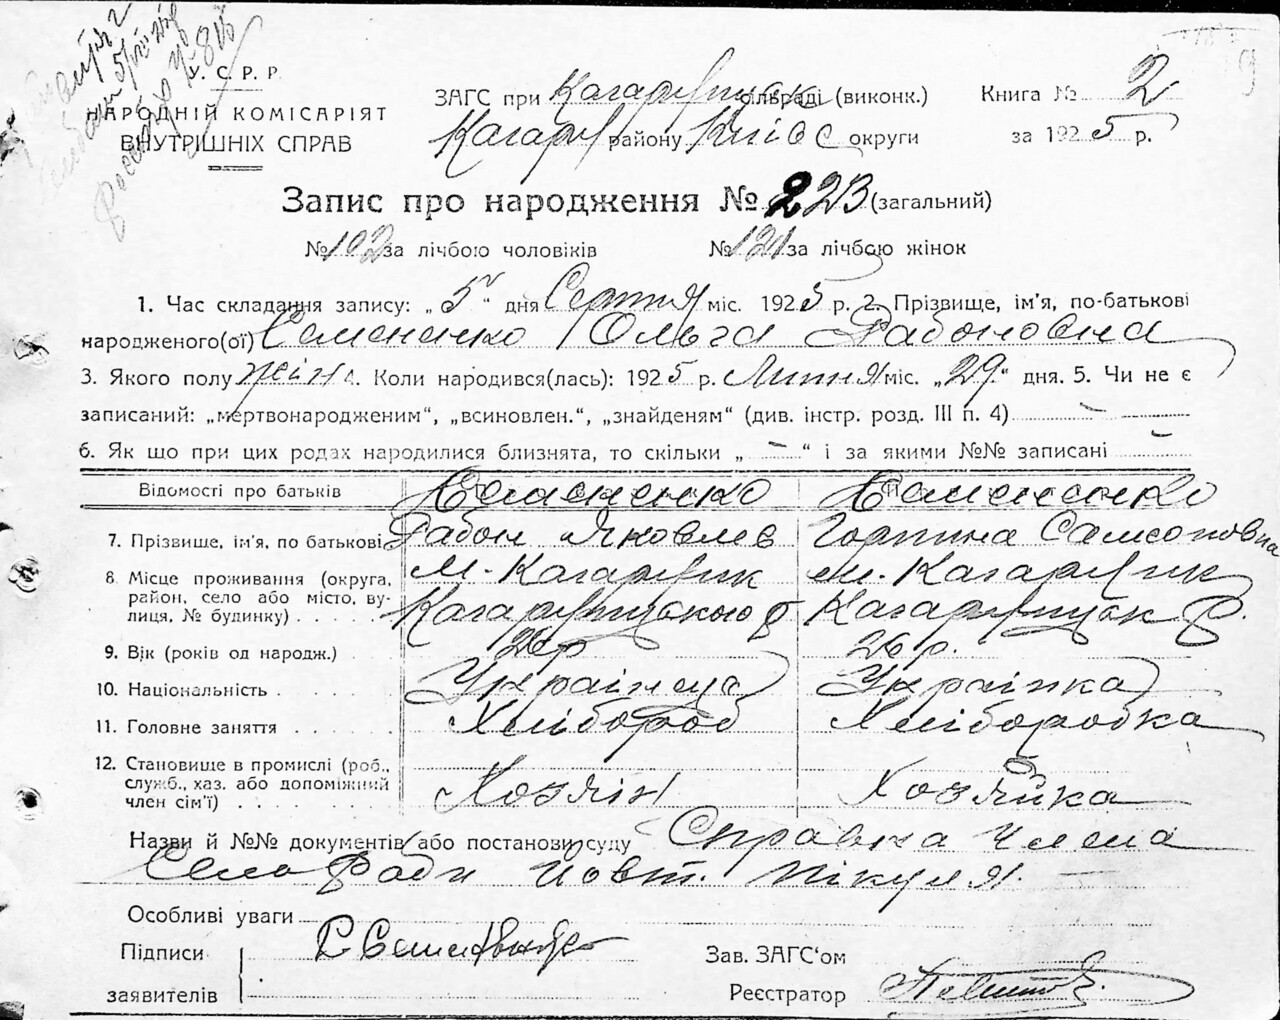 У. С. Р. Р.
НАРОДНІЙ КОМІСАРІЯТ
ВНУТРІШНІХ СПРАВ
ЗАГС при Кагарлицьк сільраді (виконк.)
Кагарл району Київс округи
Книга № 2
за 1925 р.
Запис про народження № 223 (загальний)
№ 102 за лічбою чоловіків № 121 за лічбою жінок
1. Час складання запису: „ 5 “ дня Серпня міс. 1925 р. 2. Прізвище, ім'я, по-батькові
народженого(ої) Семененко Ольга Рабоновна
3. Якого полу жін 4. Коли народився(лась): 1925 р. Липня міс. „ 29 “ дня. 5. Чи не є
записаний: „мертвонародженим“, „всиновлен.“, „знайденям“ (див. інстр. розд. III п. 4) —
6. Як що при цих родах народилися близнята, то скільки „ — “ і за якими №№ записані —
Відомості про батьків
7. Прізвище, ім'я, по батькові Семененко Семененко
Рабон Яковлев Горпина Самсоновна
8 Місце проживання (округа, м. Кагарлик м. Кагарлик
район, село або місто, ву-
лиця, № будинку) Кагарлицького р Кагарлицьк р.
9. Вік (років од народж.) 26 р 26 р.
10. Національність Українець Українка
11. Головне заняття Хлібороб Хліборобка
12. Становище в промислі (роб.,
служб., хаз. або допоміжний
член сім'ї) Хозяін Хозяйка
Назви й №№ документів або постанови суду Справка члена
Сельради Жовт. Пікуля
Особливі уваги
Підписи
заявителів
Зав. ЗАГС'ом
Реєстратор